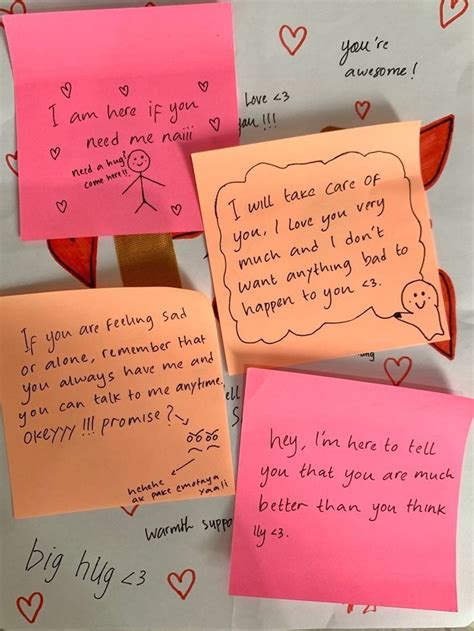 you're
awesome!
I am here if you
need me naiii
need a hug?
come here!!
Love <3
you!!!
I will take care of
you, I love you very
much and I don't
want anything bad to
happen to you <3.
If you are feeling sad
or alone, remember that
you always have me and
you can talk to me anytime.
Okeyyy!!! promise?
hehehe
ak pake emotnya
yaali
hey, I'm here to tell
you that you are much
better than you think
ily <3.
warmth
big hug <3